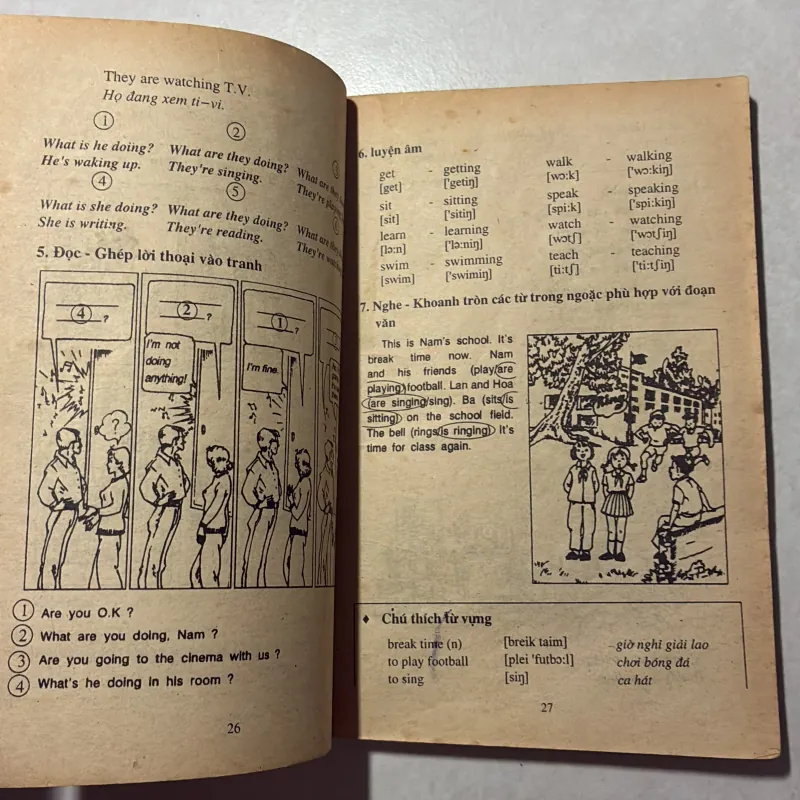 They are watching T.V.
Họ đang xem ti-vi.
① ②
What is he doing? What are they doing? What are they
He's waking up. They're singing. They're
④ ⑤
What is she doing? What are they doing? What are they
She is writing. They're reading. They're
5. Đọc - Ghép lời thoại vào tranh
④ ?
② ?
I'm not
doing
anything!
①
I'm fine.
?
① Are you O.K ?
② What are you doing, Nam ?
③ Are you going to the cinema with us ?
④ What's he doing in his room ?
26
6. luyện âm
get - getting walk - walking
[get] ['getiŋ] [wɔ:k] ['wɔ:kiŋ]
sit - sitting speak - speaking
[sit] ['sitiŋ] [spi:k] ['spi:kiŋ]
learn - learning watch - watching
[lə:n] ['lə:niŋ] [wɔtʃ] ['wɔtʃiŋ]
swim - swimming teach - teaching
[swim] ['swimiŋ] [ti:tʃ] ['ti:tʃiŋ]
7. Nghe - Khoanh tròn các từ trong ngoặc phù hợp với đoạn
văn
This is Nam's school. It's
break time now. Nam
and his friends (play/are
playing) football. Lan and Hoa
(are singing/sing). Ba (sits/is
sitting) on the school field.
The bell (rings/is ringing) It's
time for class again.
♦ Chú thích từ vựng
break time (n) [breik taim] - giờ nghỉ giải lao
to play football [plei 'futbɔ:l] chơi bóng đá
to sing [siŋ] ca hát
27